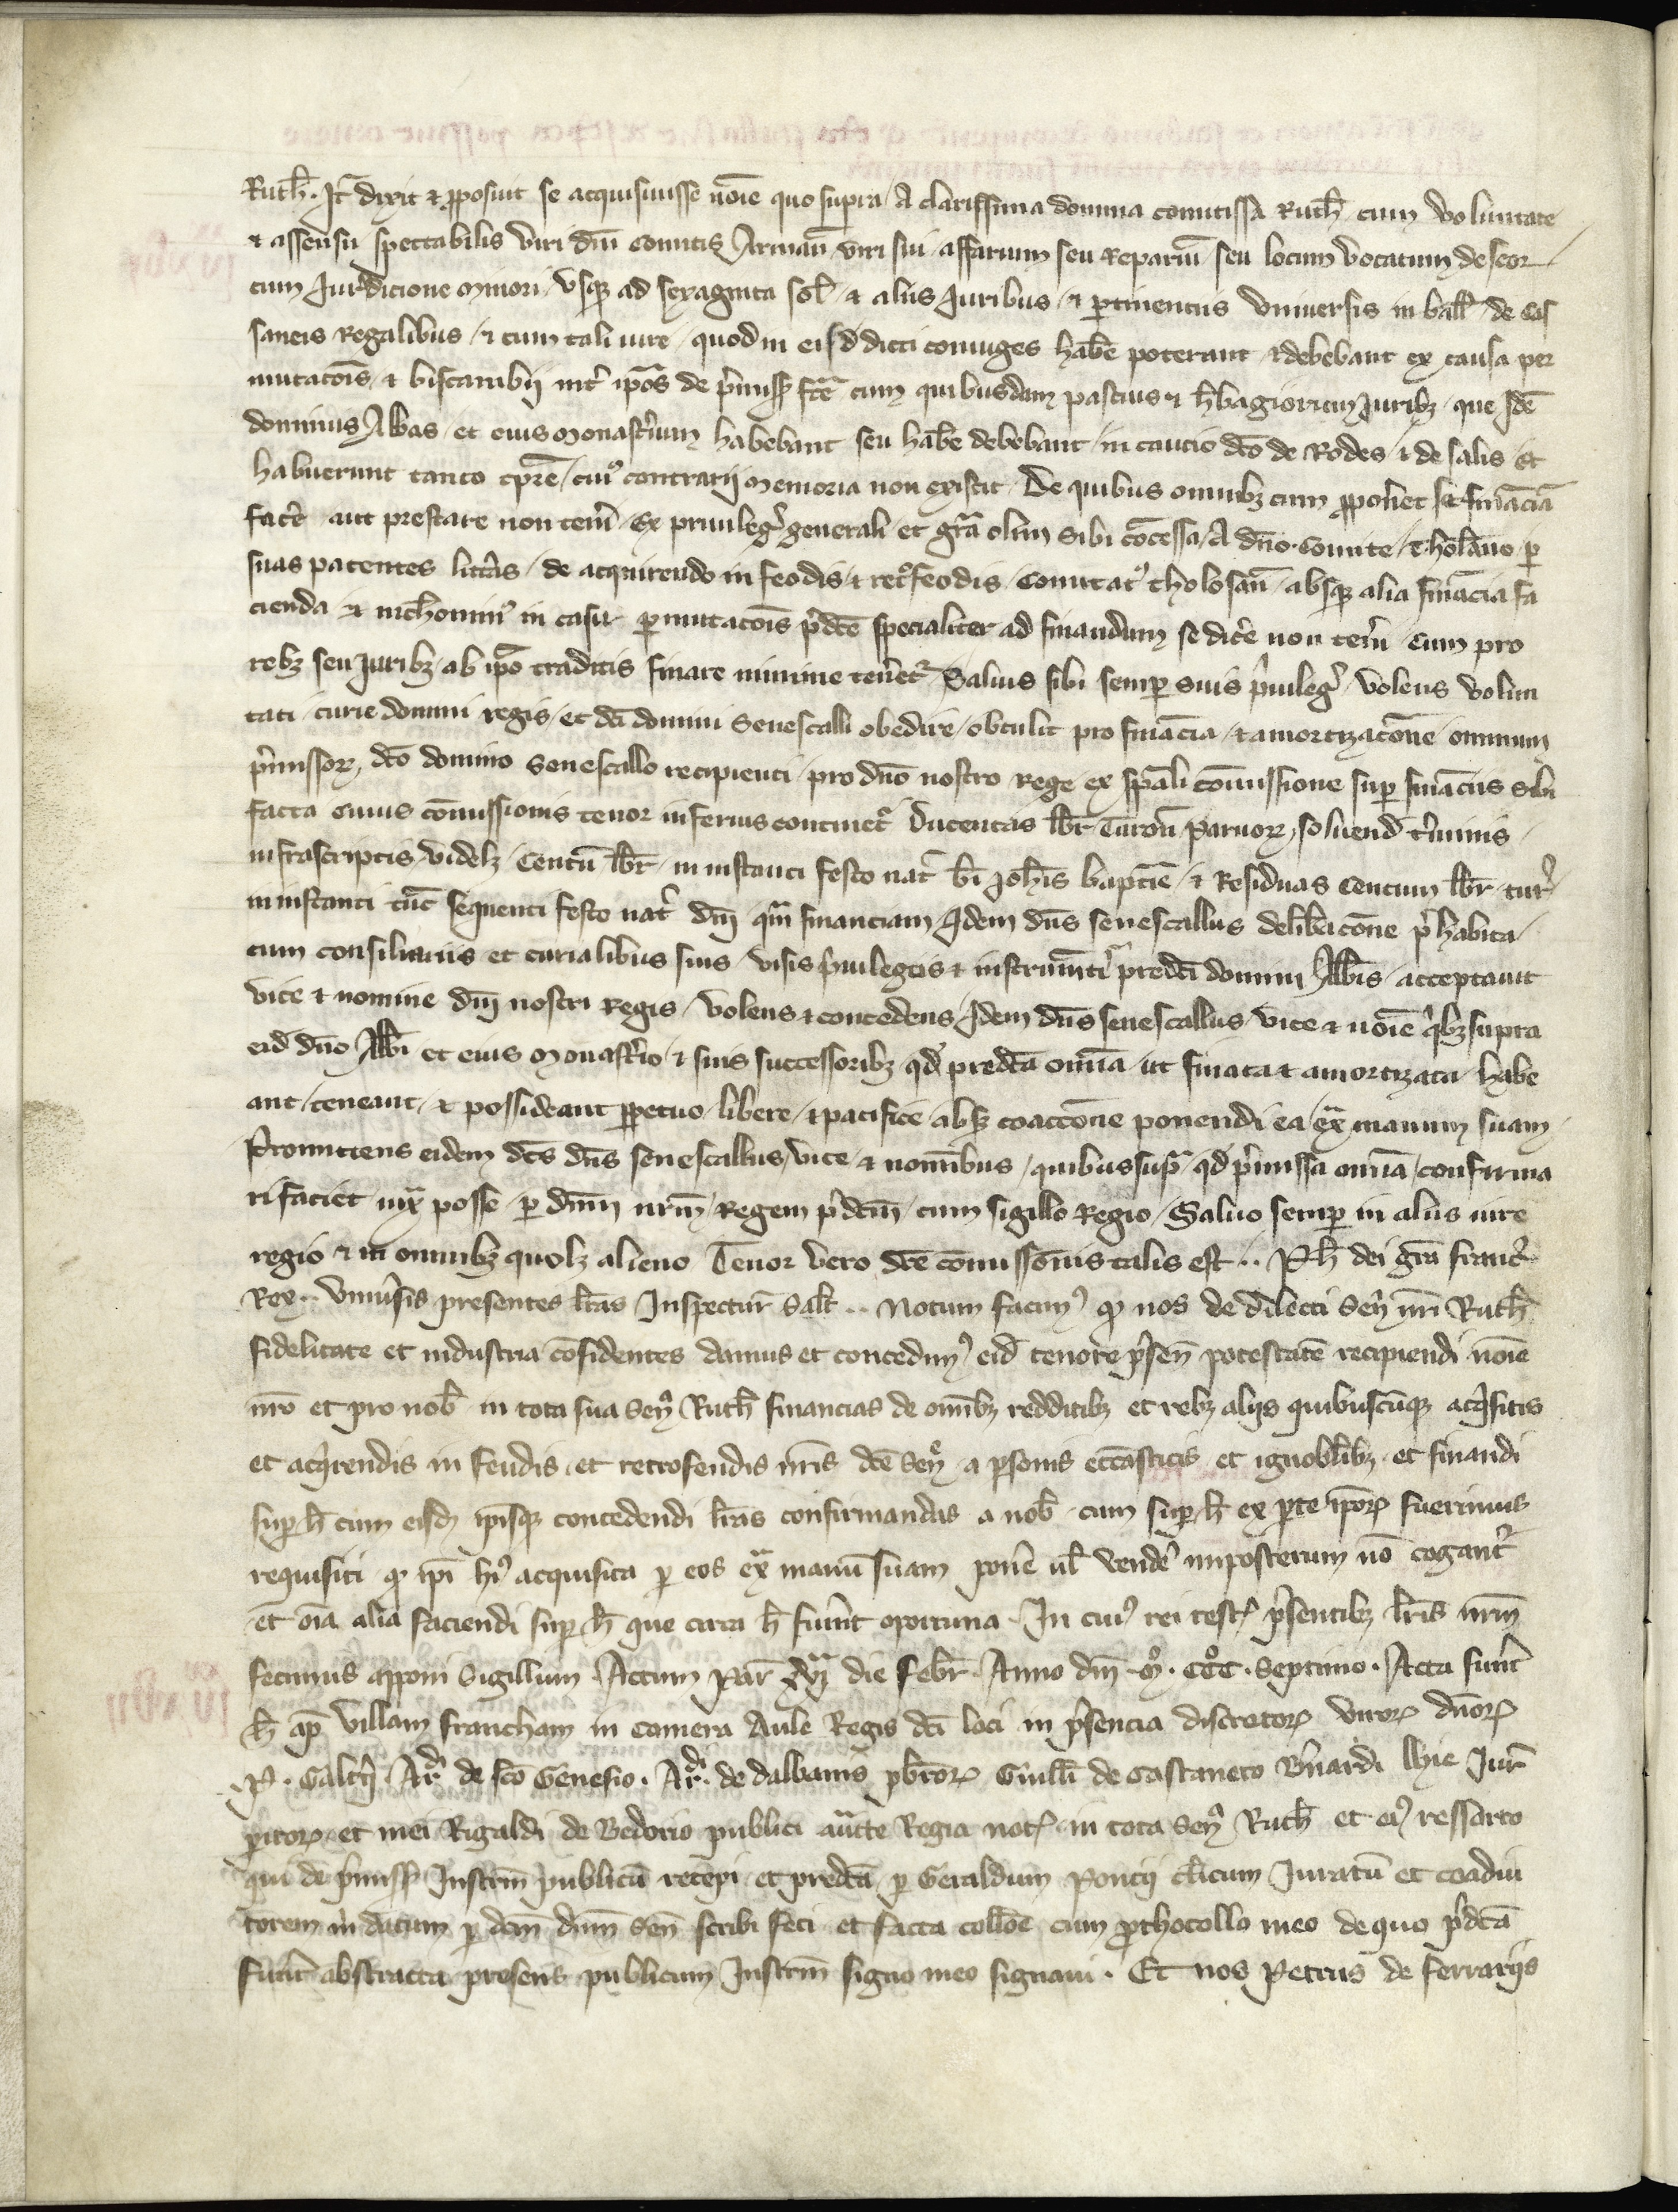 Ruth. It dixit & proposuit se acquisiuisse noie quo supra / A clarissima domina comitissa Ruth cum voluntate
& assensu spectabilis viri dni Comitis Arman viri sui affarium seu Reparium seu locum vocatum deseor
cum Jurdicione minori vsq ad sexaginta sol & aliis Juribus & ptinentiis vniuersis in ball de Cas
saneis Regalibus & cum tali iure quod in eisd dicti coniuges habe poterant & debebant ex causa per
mutacois & biscambij int ipos de pmiss fce cum quibusdam pascuis & hbagiorum Juribz que Ide
dominus Abbas et eius Monastium habebant seu habe debebant in dco de Rodes & de salis Et
habuerunt tanto tpre cui contrarij memoria non existit De quibus omnibz cum pponet se financia
face aut prestare non teni Ex priuileg generali et gra olim sibi cocessa A dno Comite Tholano p
suas patentes litas de acquirendo in feodis & retofeodis Comitat tholosan absq alia financia fa
cienda & nichomin in casu pmutacois pdce specialiter ad finandum se dice non teni cum pro
rebz seu Juribz ab ipo traditis finare minime tenet Saluis sibi semp suis priuileg volens volun
tati curie domini regis et dci domini Senescalli obedire obtulit pro financia & amortizacone omnium
pmissor dco domino Senescallo recipienti pro dno nostro Rege ex spali comissione sup financiis sibi
facta cuius comissionis tenor inferius continet Ducentas lbr Turon Paruor soluend tminis
infrascriptis videlz Centu lbr in instanti festo nat bi Johis baptie & Residuas Centum lbr tur
in instanti tuc sequenti festo nat dni qm financiam Idem dns senescallus delibacone phabita
cum consiliariis et curialibus suis visis priuilegiis & instrumti predci domini Abbis acceptauit
vice & nomine dni nostri Regis volens & concedens Idem dns senescallus vice & noie qbz supra
eid dno Abbi et eius Monastio & suis successoribz qd predca omnia ut finata & amortizata habe
ant teneant & possideant ppetuo libere & pacifice absq coaccone ponendi ea ex manum suam
Promittens eidem dcs dns senescallus vice & nomibus quibus sup qd pmissa omia confirma
ri faciet iux posse p dnm nrm Regem pdcm cum sigillo Regio Saluo semp in aliis iure
regio & in omnibz quolz alieno Tenor vero dce comissionis talis est .. Ph dei gra franc
Rex .. vniusis presentes lras Inspectur Salt .. Notum facim q nos de dilecti Sen nri Ruth
fidelitate et industria cofidentes damus et concedim eid tenore psen potestate recipiendi noie
nro et pro nob in tota sua Sen Ruth financias de omibz redditibz et rebz alijs quibuscuq acqsitis
et acqrendis in feudis et retrofeudis nris dce Sen a psonis eccasticis et ignobilibz et finandi
sup h cum eisd ipisq concedendi lras confirmandas a nob cum sup h ex pte ipor fuerimus
requisiti q ipi hi acquisita p eos ex manu suam pone ul vende imposterum no cogant
et oia alia faciendi sup h que circa h fuint oportuna In cui rei test psentibz lris nrm
fecimus apponi Sigillum Actum Par die Febr Anno dni M CCC Septimo Acta funt
h ap villam francham in camera Aule Regis dci loci in psencia discretor viror dnor
P. Galtij Ar de sco Genesio Ar de dalbanis pbror Guilli de Castaneto Bnardi Jur
pitor et mei Rigaldi de Bedorio publici aucte Regia not in tota Sen Ruth et ei ressorto
qui de pmiss Instrm publicu recepi et predca p Geraldum Poncij clicum Juratu et coadiu
torem m datum p dcm dnm Sen scribi feci et facta collone cum pthocollo meo de quo pdca
funt abstracta presens publicum Instrm signo meo signaui. Et nos Petrus de ferrarijs